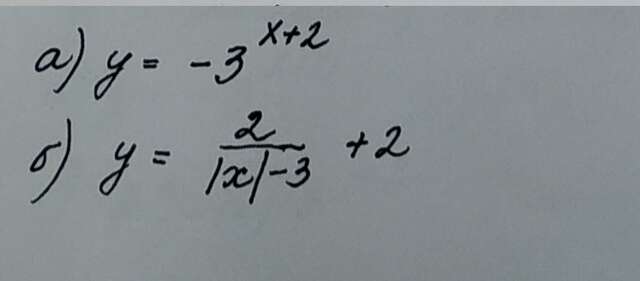 а) y = -3^{x+2}
б) y = \frac{2}{|x|-3} + 2